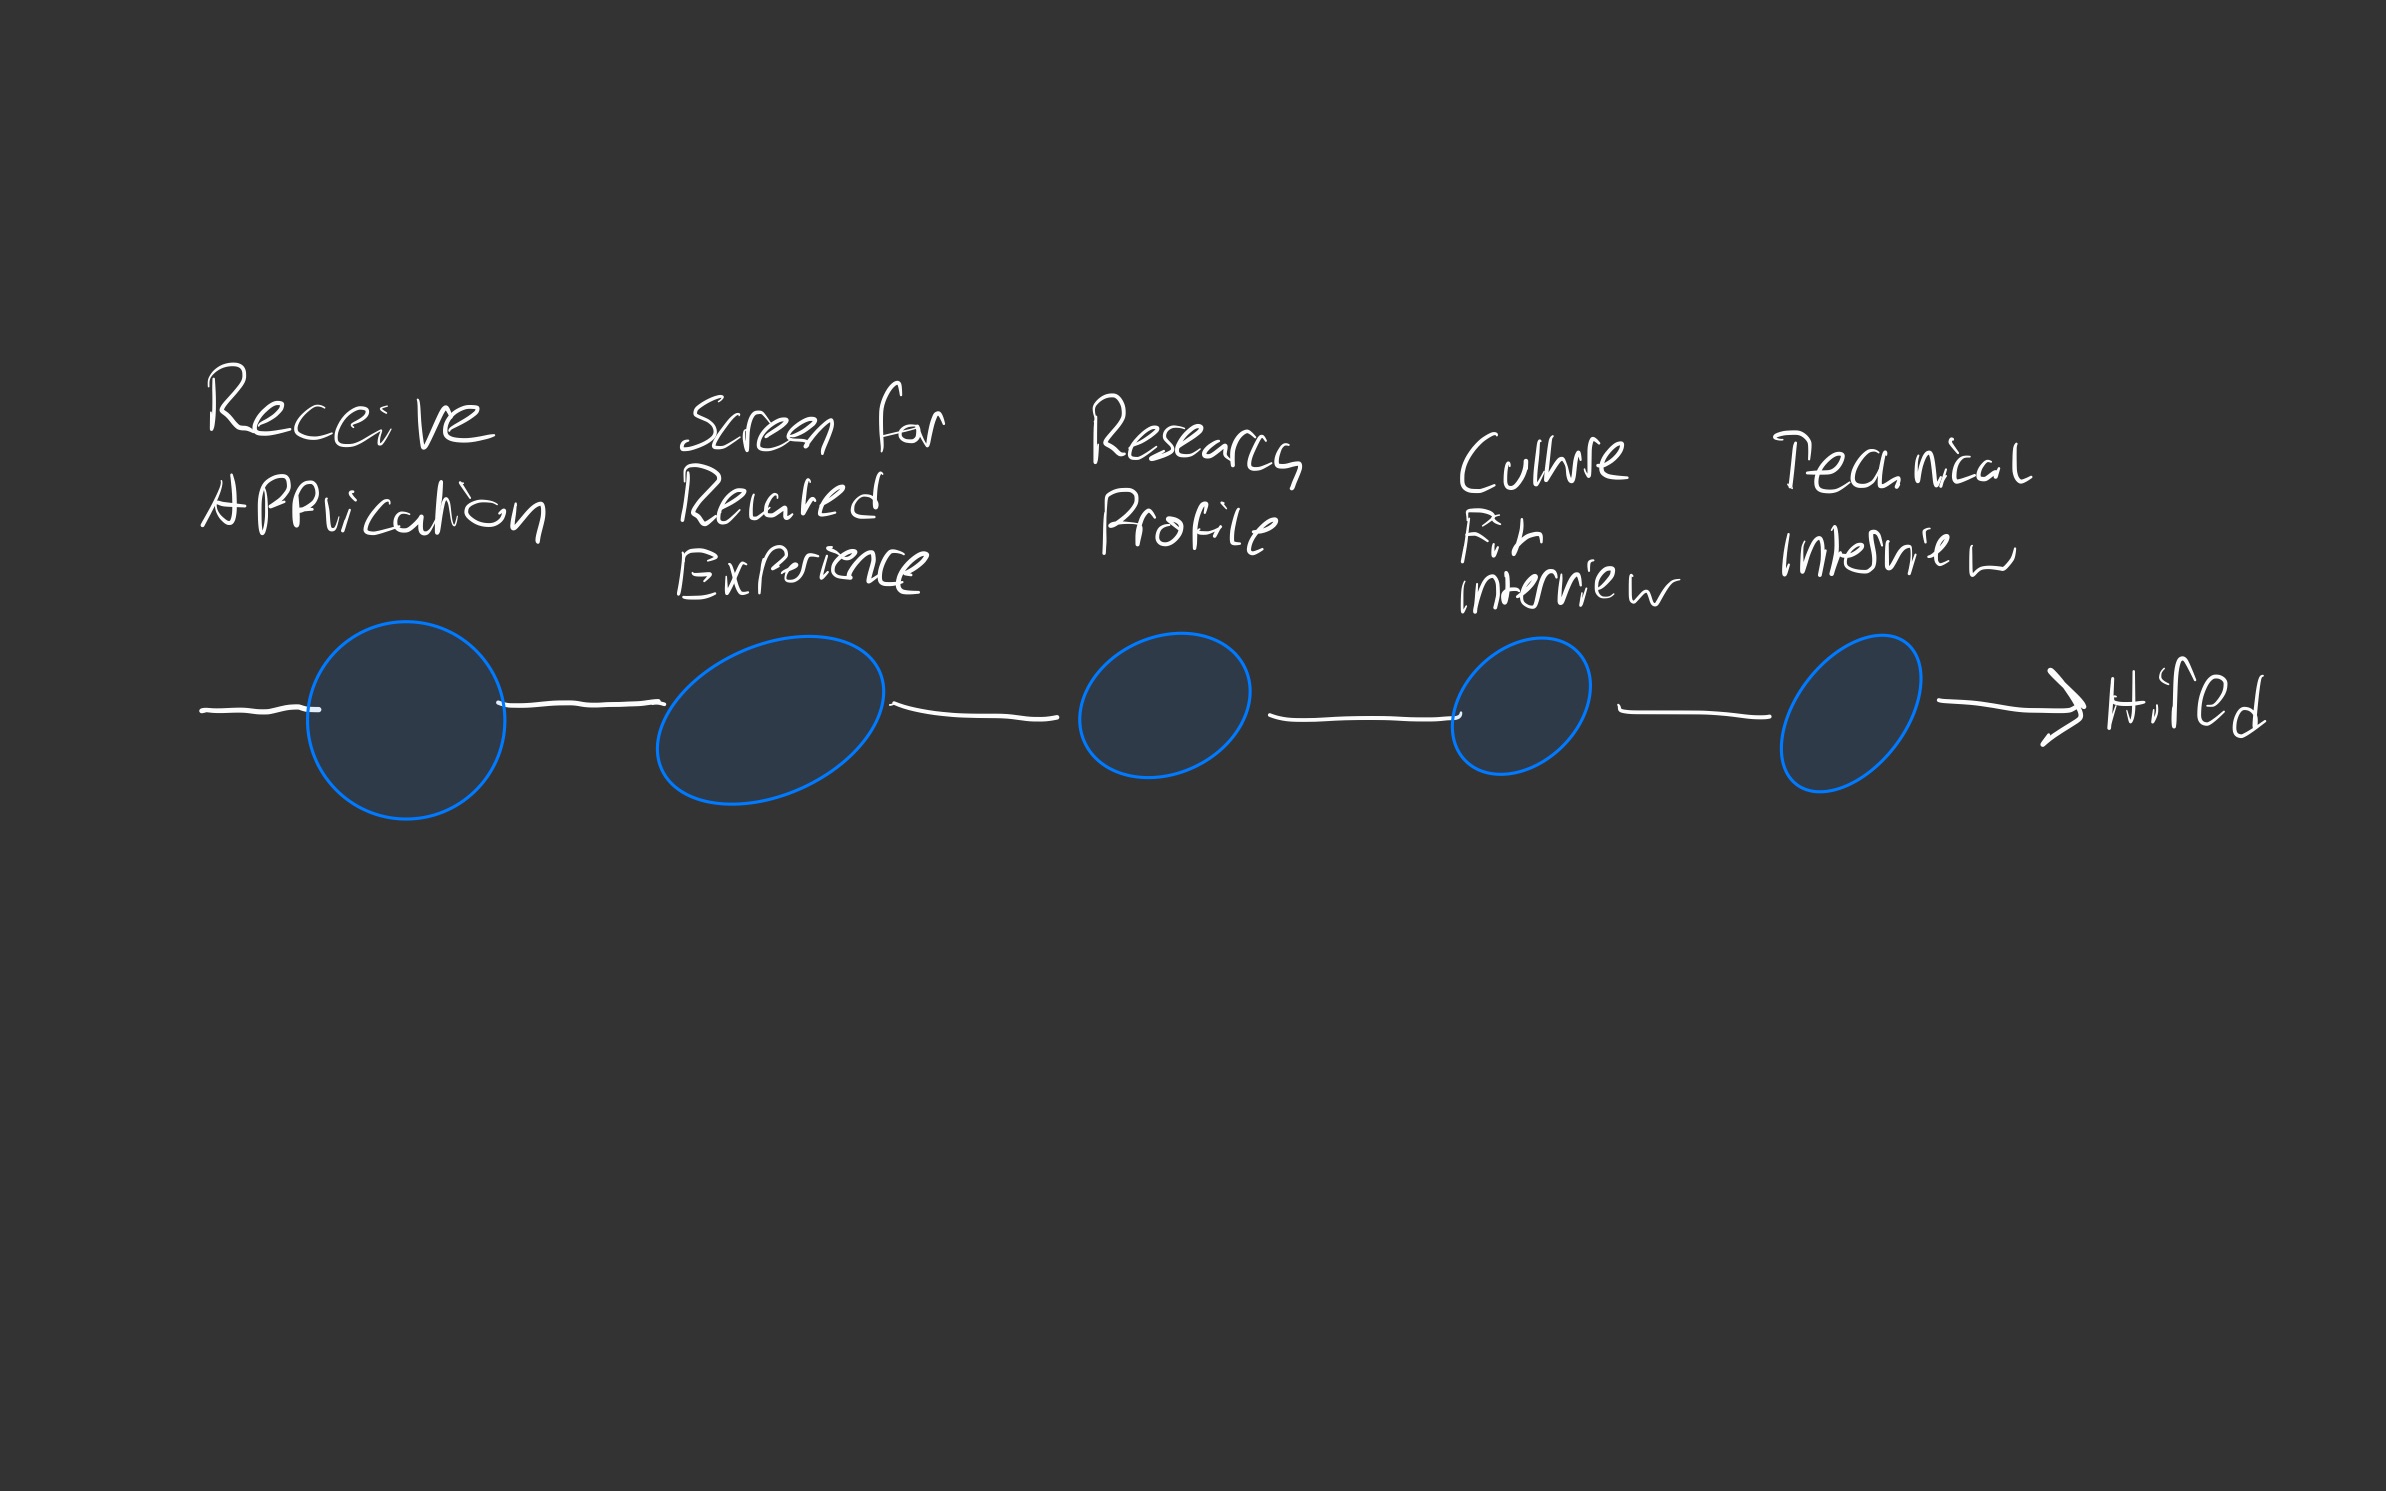 Receive
Application
Screen for
Realted
Experience
Research
Profile
Culture
Fit
interview
Technical
interview
Hired